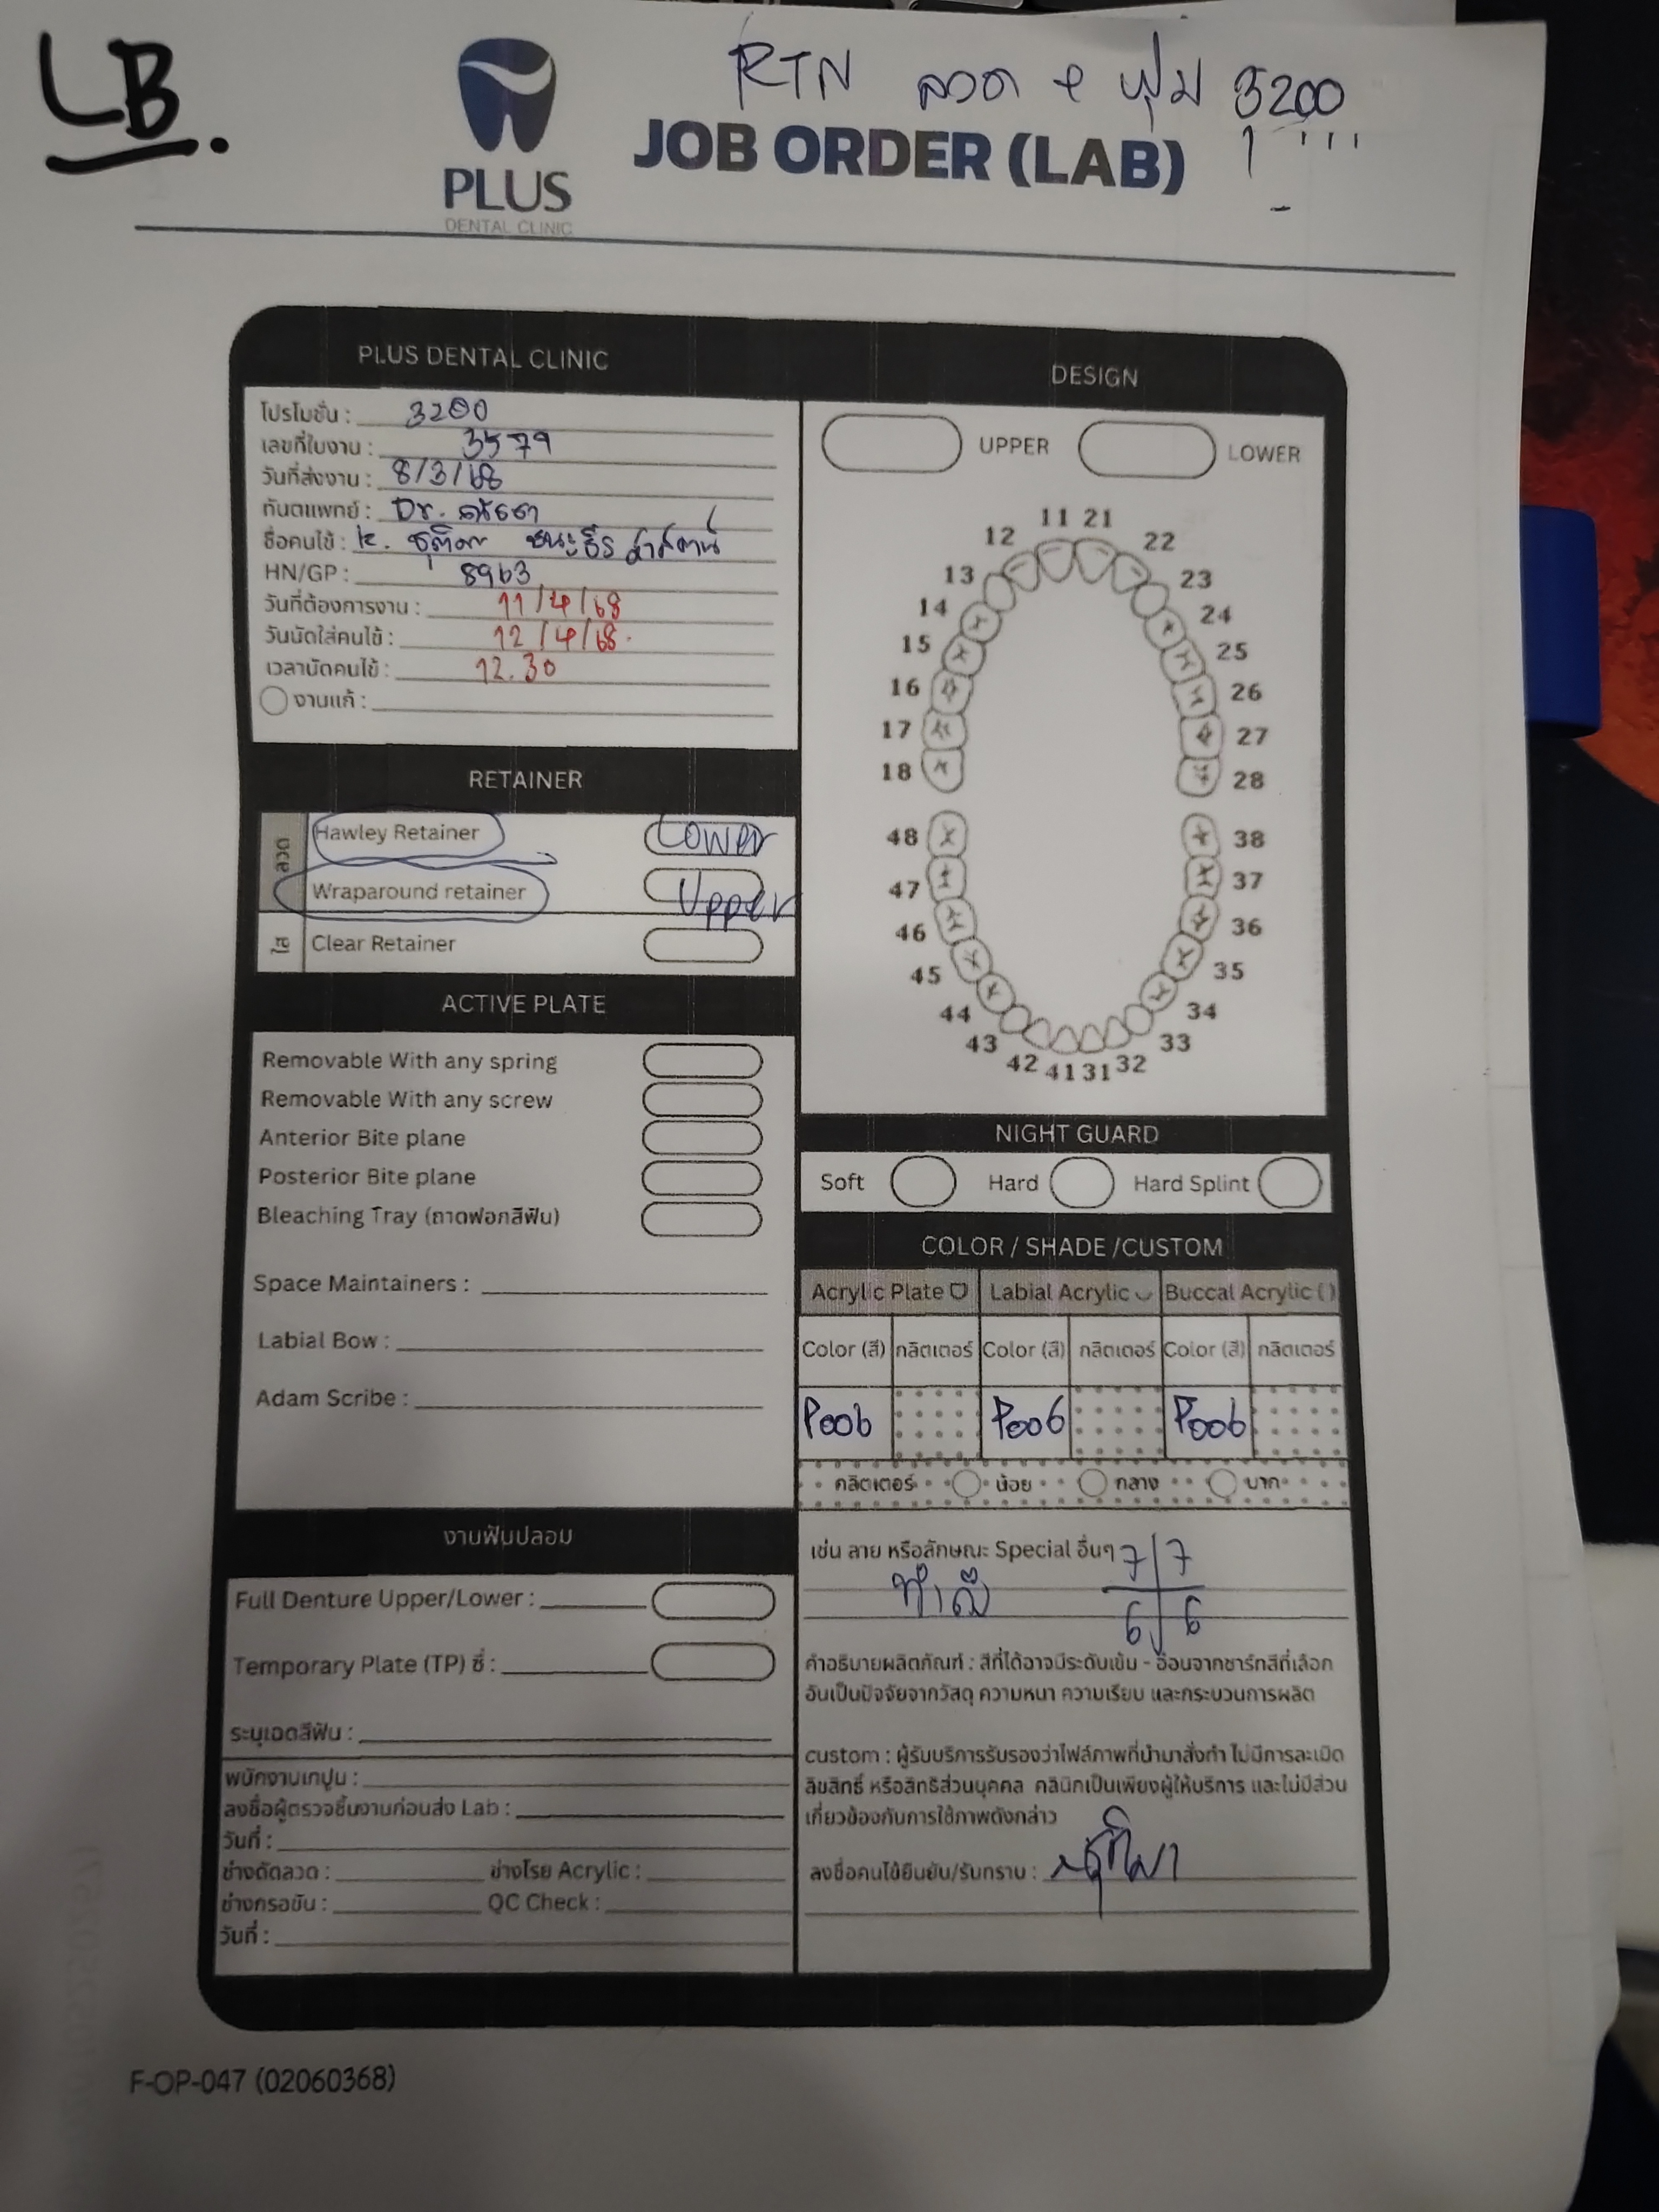 LB.
RTN ลวด
3200
PLUS
DENTAL CLINIC
JOB ORDER (LAB)
PLUS DENTAL CLINIC
โปรโมชั่น : 3200
เลขที่ใบงาน : 3579
วันที่ส่งงาน : 8/3/68
ทันตแพทย์ : Dr.
ชื่อคนไข้ :
HN/GP : 8963
วันที่ต้องการงาน : 11/4/68
วันนัดใส่คนไข้ : 12/4/68.
เวลานัดคนไข้ : 12.30
งานแก้ :
RETAINER
ลวด
Hawley Retainer Lower
Wraparound retainer Upper
ใส
Clear Retainer
ACTIVE PLATE
Removable With any spring
Removable With any screw
Anterior Bite plane
Posterior Bite plane
Bleaching Tray (ถาดฟอกสีฟัน)
Space Maintainers :
Labial Bow :
Adam Scribe :
งานฟันปลอม
Full Denture Upper/Lower :
Temporary Plate (TP) ซี่ :
ระบุเฉดสีฟัน :
พนักงานเทปูน :
ลงชื่อผู้ตรวจชิ้นงานก่อนส่ง Lab :
วันที่ :
ช่างดัดลวด : ช่างโรย Acrylic :
ช่างกรอขัน : QC Check :
วันที่ :
DESIGN
UPPER LOWER
11 21
12 22
13 23
14 24
15 25
16 26
17 27
18 28
48 38
47 37
46 36
45 35
44 34
43 33
42 41 31 32
NIGHT GUARD
Soft Hard Hard Splint
COLOR / SHADE /CUSTOM
Acrylic Plate Labial Acrylic Buccal Acrylic ( )
Color (สี) กลิตเตอร์ Color (สี) กลิตเตอร์ Color (สี) กลิตเตอร์
P006 P006 P006
กลิตเตอร์ น้อย กลาง มาก
เช่น ลาย หรือลักษณะ Special อื่นๆ 7 7
6 6
คำอธิบายผลิตภัณฑ์ : สีที่ได้อาจมีระดับเข้ม - อ่อนจากชาร์ทสีที่เลือก
อันเป็นปัจจัยจากวัสดุ ความหนา ความเรียบ และกระบวนการผลิต
custom : ผู้รับบริการรับรองว่าไฟล์ภาพที่นำมาสั่งทำ ไม่มีการละเมิด
ลิขสิทธิ์ หรือสิทธิส่วนบุคคล คลินิกเป็นเพียงผู้ให้บริการ และไม่มีส่วน
เกี่ยวข้องกับการใช้ภาพดังกล่าว
ลงชื่อคนไข้ยืนยัน/รับทราบ :
F-OP-047 (02060368)